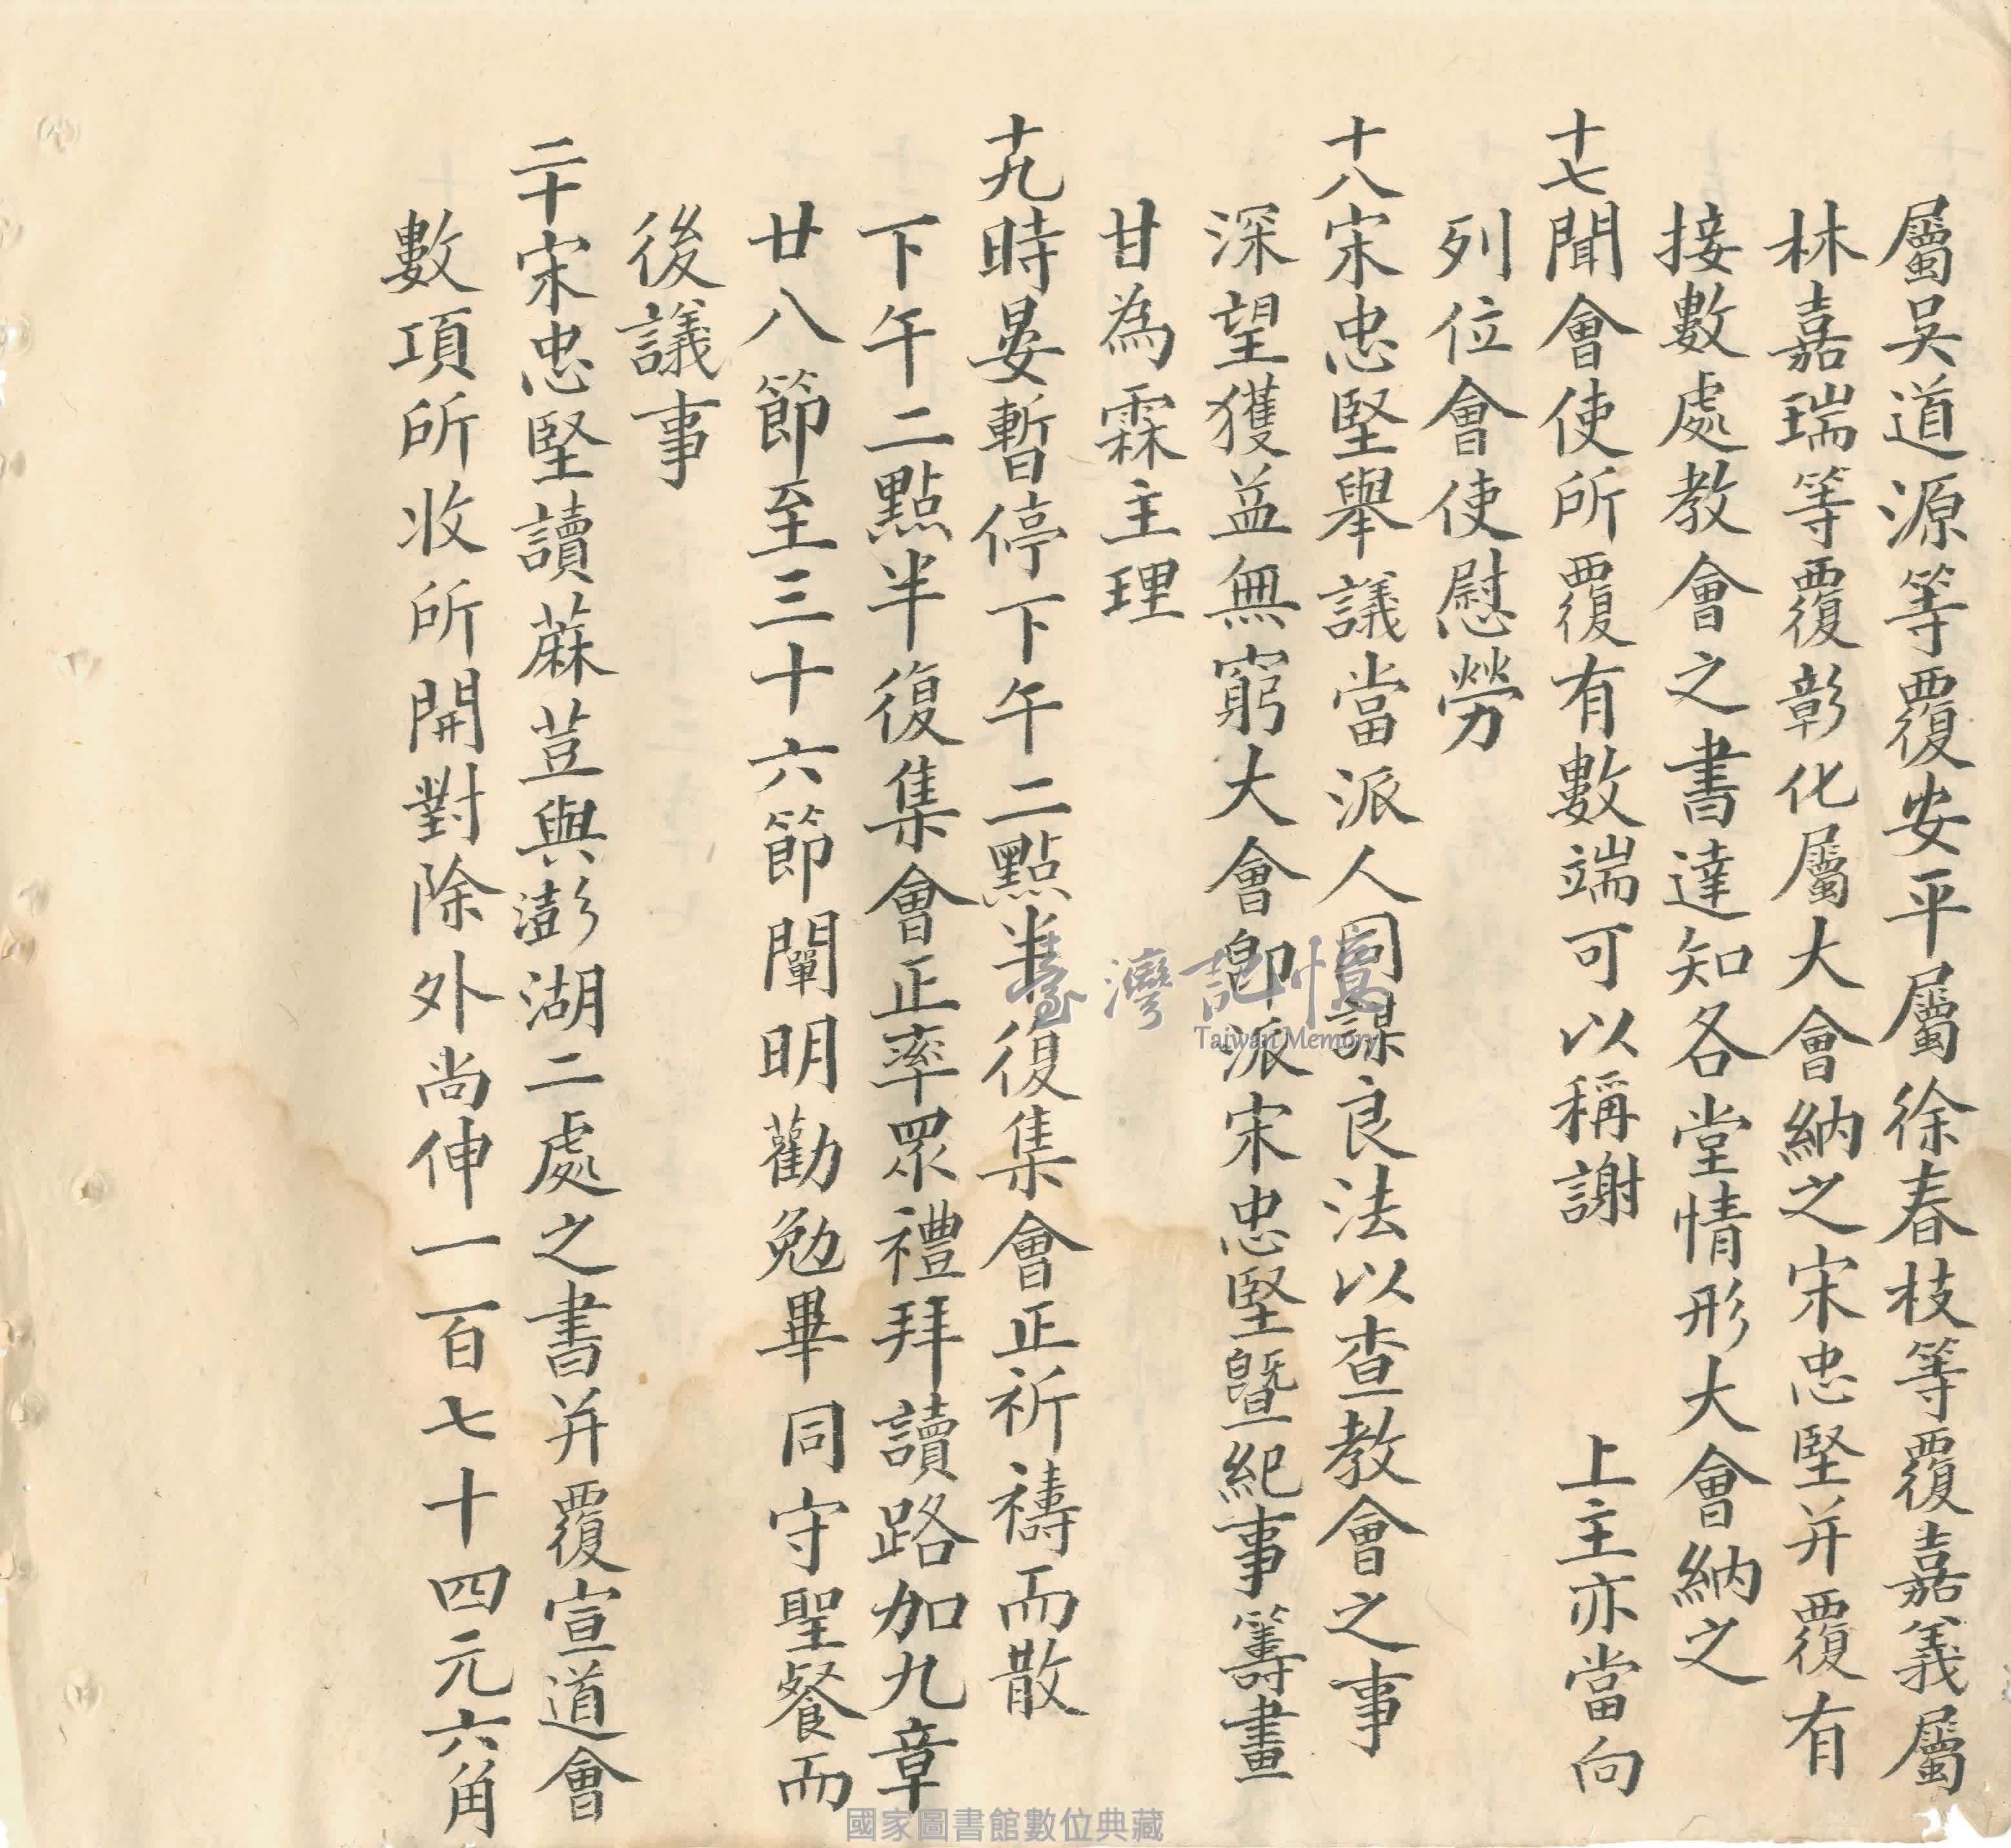 屬吳道源等覆安平屬徐春枝等覆嘉義屬
林嘉瑞等覆彰化屬大會納之宋忠堅并覆有
接數處教會之書達知各堂情形大會納之
十七聞會使所覆有數端可以稱謝　上主亦當向
列位會使慰勞
十八宋忠堅舉議當派人同謀良法以查教會之事
深望獲益無窮大會卽派宋忠堅曁紀事籌畫
甘為霖主理
十九時晏暫停下午二點半復集會正祈禱而散
下午二點半復集會正率眾禮拜讀路加九章
廿八節至三十六節闡明勸勉畢同守聖餐而
後議事
二十宋忠堅讀蔴荳與澎湖二處之書并覆宣道會
數項所收所開對除外尚伸一百七十四元六角
臺灣記憶
Taiwan Memory
國家圖書館數位典藏